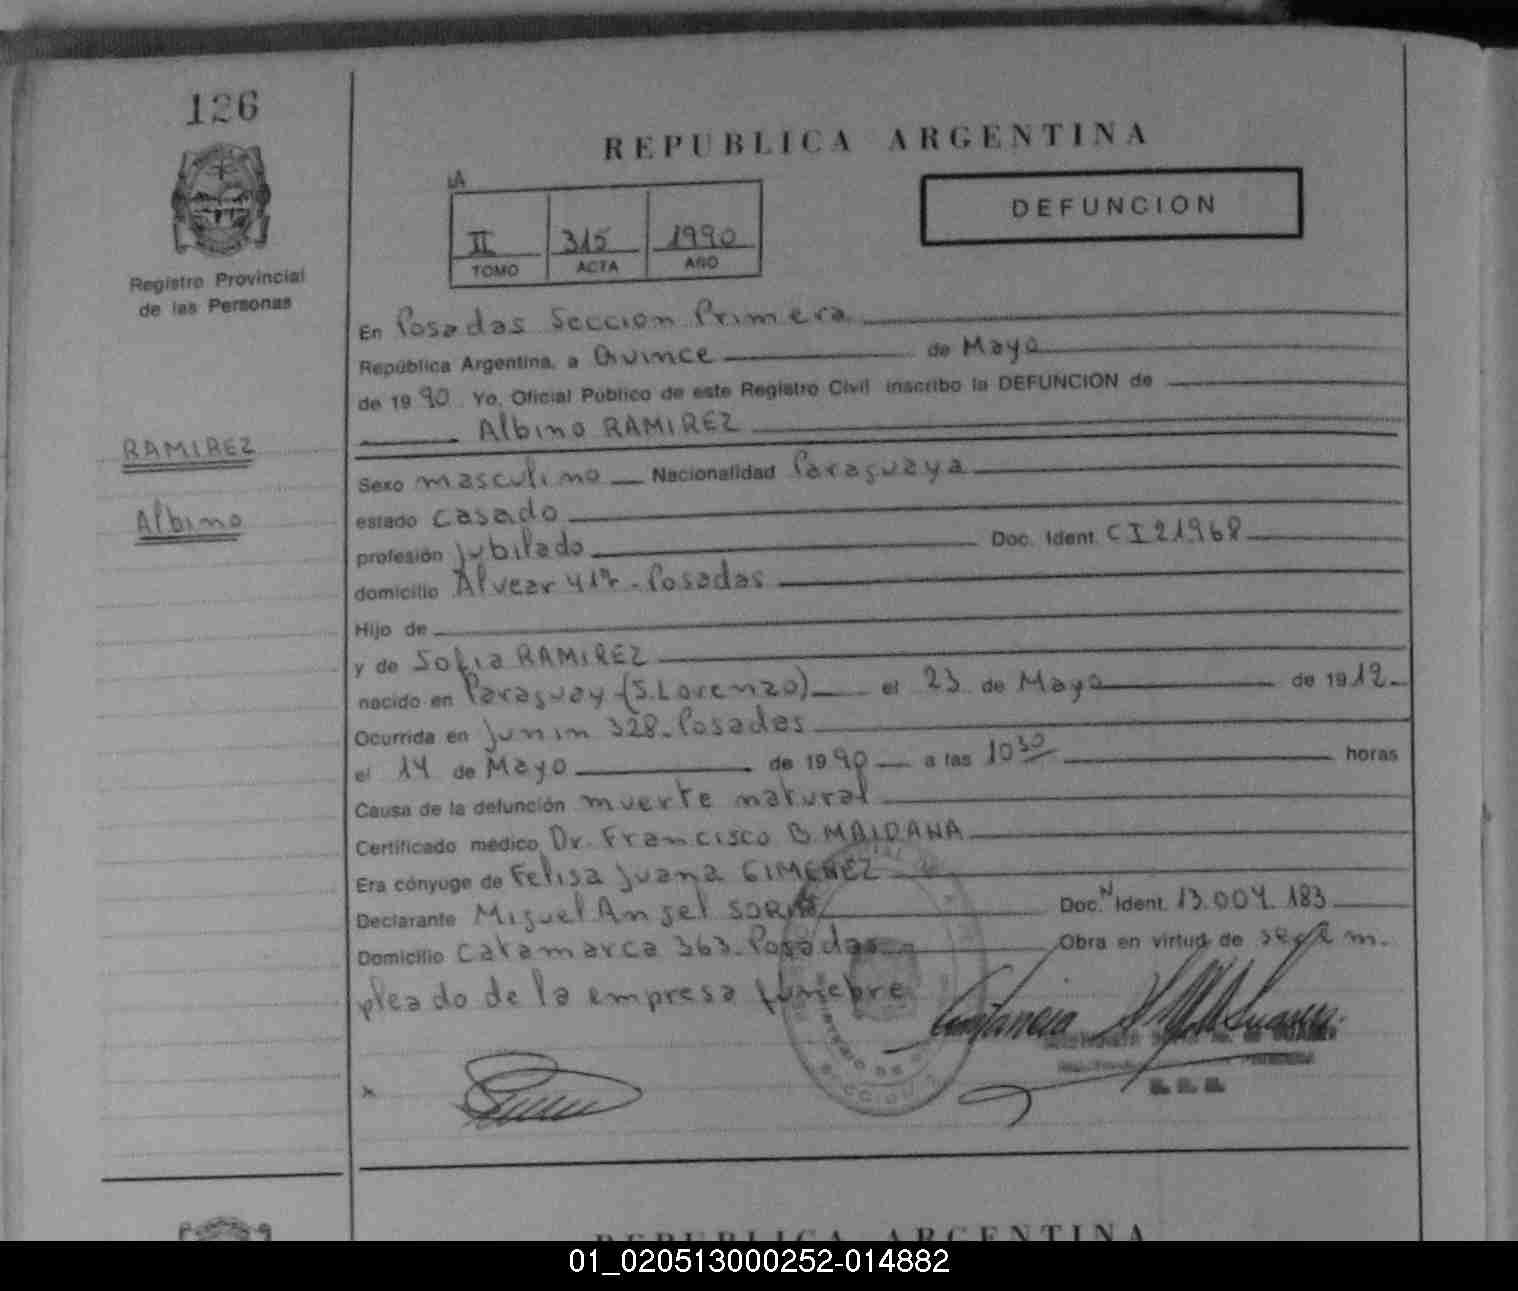 126
REPUBLICA ARGENTINA
DEFUNCION
II 315 1990
TOMO ACTA AÑO
Registro Provincial
de las Personas
RAMIREZ
Albino
En Posadas Seccion Primera
República Argentina, a Quince de Mayo
de 1990 Yo, Oficial Público de este Registro Civil inscribo la DEFUNCION de
Albino RAMIREZ
Sexo masculino Nacionalidad Paraguaya
estado casado
profesión jubilado Doc. Ident. CI 21968
domicilio Alvear - Posadas
Hijo de
y de Sofia RAMIREZ
nacido en Paraguay (S. Lorenzo) el 23 de Mayo de 1912
Ocurrida en Junin 328 - Posadas
el 14 de Mayo de 1990 a las 10 30 horas
Causa de la defunción muerte natural
Certificado médico Dr. Francisco B. MAIDANA
Era cónyuge de Felisa Juana GIMENEZ
Declarante Miguel Angel SORIA Doc. N Ident. 13.004.183
Domicilio Catamarca 363 - Posadas Obra en virtud de
pleado de la empresa funebre
REPUBLICA ARGENTINA
01_020513000252-014882